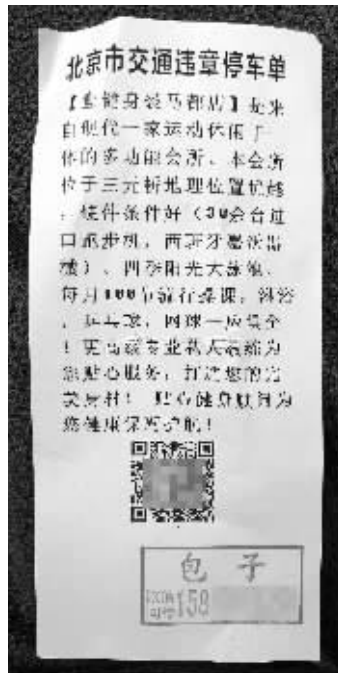 北京市交通违章停车单
健身 马都店】是来
自现代一家运动休闲于一
体的多功能会所。本会所
位于三元桥地理位置优越
，硬件条件好（30余台过
口跑步机，西班牙 器
械）、四季阳光大泳池、
每月100节流行操课，淋浴
，乒乓球，网球一应俱全
！更高级专业私人教练为
您贴心服务，打造您的完
美身材！ 健身顾问为
您健康保驾护航！
包子
158